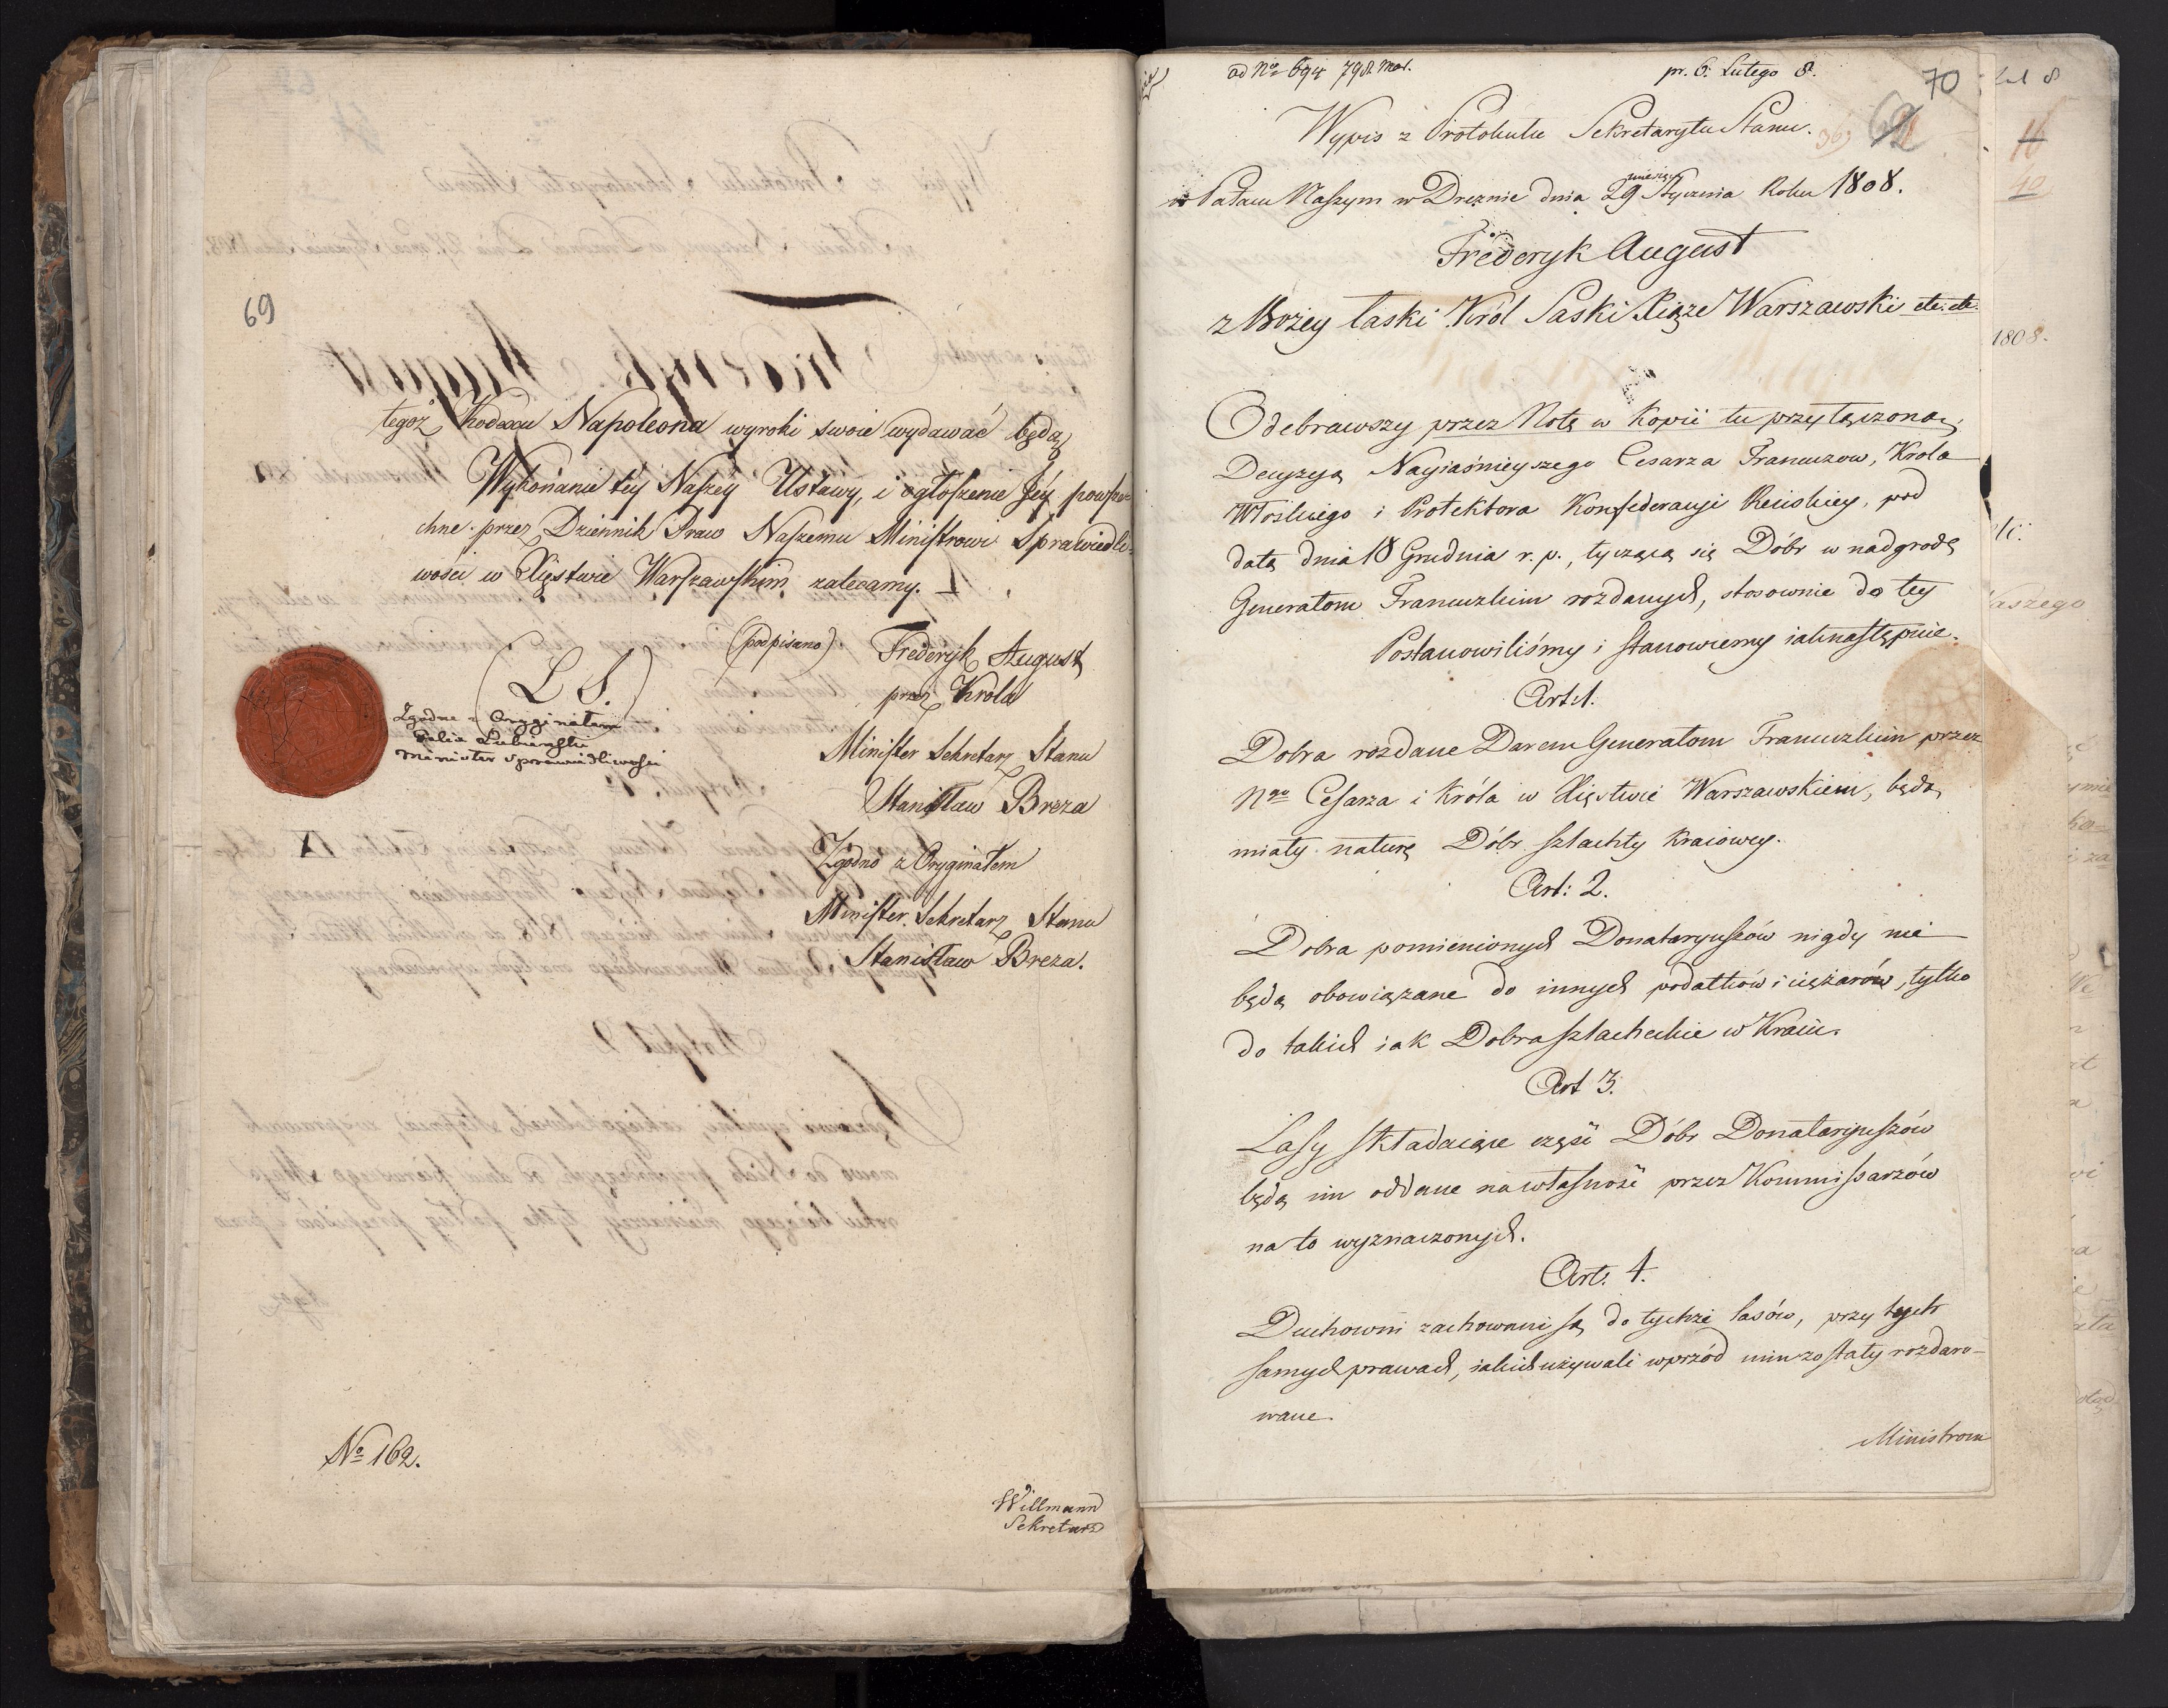 69
tegoż Kodexu Napoleona wyroki swoie wydawać będą
Wykonanie tey Naszey Ustawy, i ogłoszenie Jéy powsze-
chne przez Dziennik Praw Naszemu Ministrowi Sprawiedli-
wości w Xięstwie Warszawskim zalecamy.
(podpisano) Frederyk August
przez Króla
(L S.)
Zgodno z Oryginałem
Felix Łubieński
Minister Sprawiedliwości
Minister Sekretarz Stanu
Stanisław Breza
Zgodno z Oryginałem
Minister Sekretarz Stanu
Stanisław Breza.
No 162.
Willmann
Sekretarz
ad No 694 798 Mar.
pr. 6. Lutego 8.
70
Wypis z Protokułu Sekretarytu Stanu.
w Pałacu Naszym w Dreznie dnia 29 miesiąca Stycznia Roku 1808.
Fréderyk August
z Bożey łaski Król Saski Xiąże Warszawski etc: etc.
Odebrawszy przez Notę w Kopii tu przyłączoną
Decyzyą Nayiaśnieyszego Cesarza Francuzow, Krola
Włoskiego i Protektora Konfederacyi Reńskiey, pod
datą dnia 18 Grudnia r. p., tyczącą się Dóbr w nadgrodę
Generałom Francuzkim rozdanych, stosownie do tey
Postanowiliśmy i stanowiemy iak następuie.
Art: 1.
Dobra rozdane Darem Generałom Francuzkim przez
Ngo Cesarza i Króla w Xięstwie Warszawskiem, będą
miały naturę Dóbr szlachty kraiowey.
Art: 2.
Dobra pomienionych Donataryuszów nigdy nie
będą obowiązane do innych podatków i ciężarów, tylko
do takich iak Dobra szlacheckie w Kraiu.
Art 3.
Lasy składaiące część Dóbr Donataryuszów
będą im oddane na własność przez Kommissarzów
na to wyznaczonych.
Art: 4.
Duchowni zachowani są do tychże lasów, przy tych
samych prawach, iakich używali wprzód nim zostały rozdaro-
wane.
Ministrom
1808.